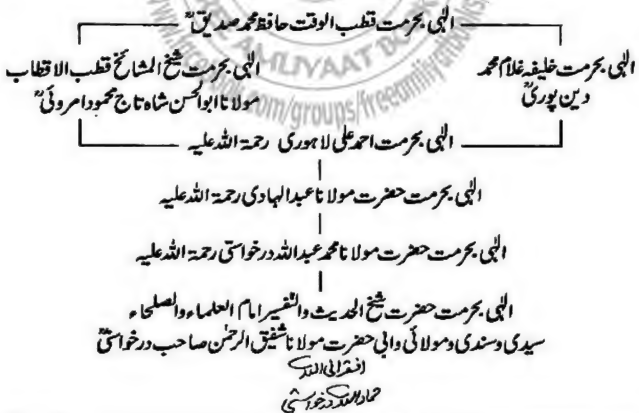 الٰہی بحرمت قطب الوقت حافظ محمد صدیقؒ
الٰہی بحرمت خلیفہ غلام محمد
دین پوریؒ
الٰہی بحرمت شیخ المشائخ قطب الاقطاب
مولانا ابوالحسن شاہ تاج محمود امروئیؒ
الٰہی بحرمت احمد علی لاہوری رحمۃ اللہ علیہ
الٰہی بحرمت حضرت مولانا عبدالہادی رحمۃ اللہ علیہ
الٰہی بحرمت حضرت مولانا محمد عبداللہ درخواستی رحمۃ اللہ علیہ
الٰہی بحرمت حضرت شیخ الحدیث والتفسیر امام العلماء والصلحاء
سیدی وسندی ومولائی وابی حضرت مولانا شفیق الرحمٰن صاحب درخواستیؒ
افقر الی اللہ
حماد اللہ درخواستی
AMLIYAAT BOOKS
.com/groups/freeamliyatbooks